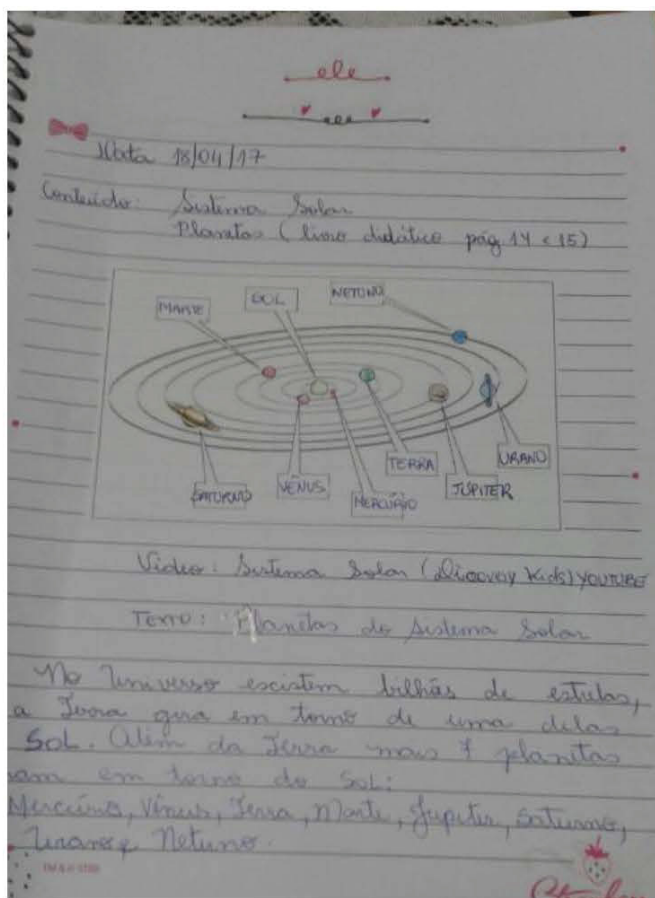 ele
Data 18/04/17
Conteúdo: Sistema Solar
Planetas (livro didático pág 14 e 15)
MARTE
SOL
NETUNO
SATURNO
VÊNUS
MERCÚRIO
TERRA
JÚPITER
URANO
Video: Sistema Solar (Discovey Kids) YOUTUBE
Texto: Planetas do Sistema Solar
No Universo existem bilhãs de estrelas,
a Terra gira em torno de uma delas
SOL. Além da Terra mais 7 planetas
am em torno do Sol:
Mercúrio, Vênus, Terra, Marte, Jupiter, Saturno,
Urano e Netuno.